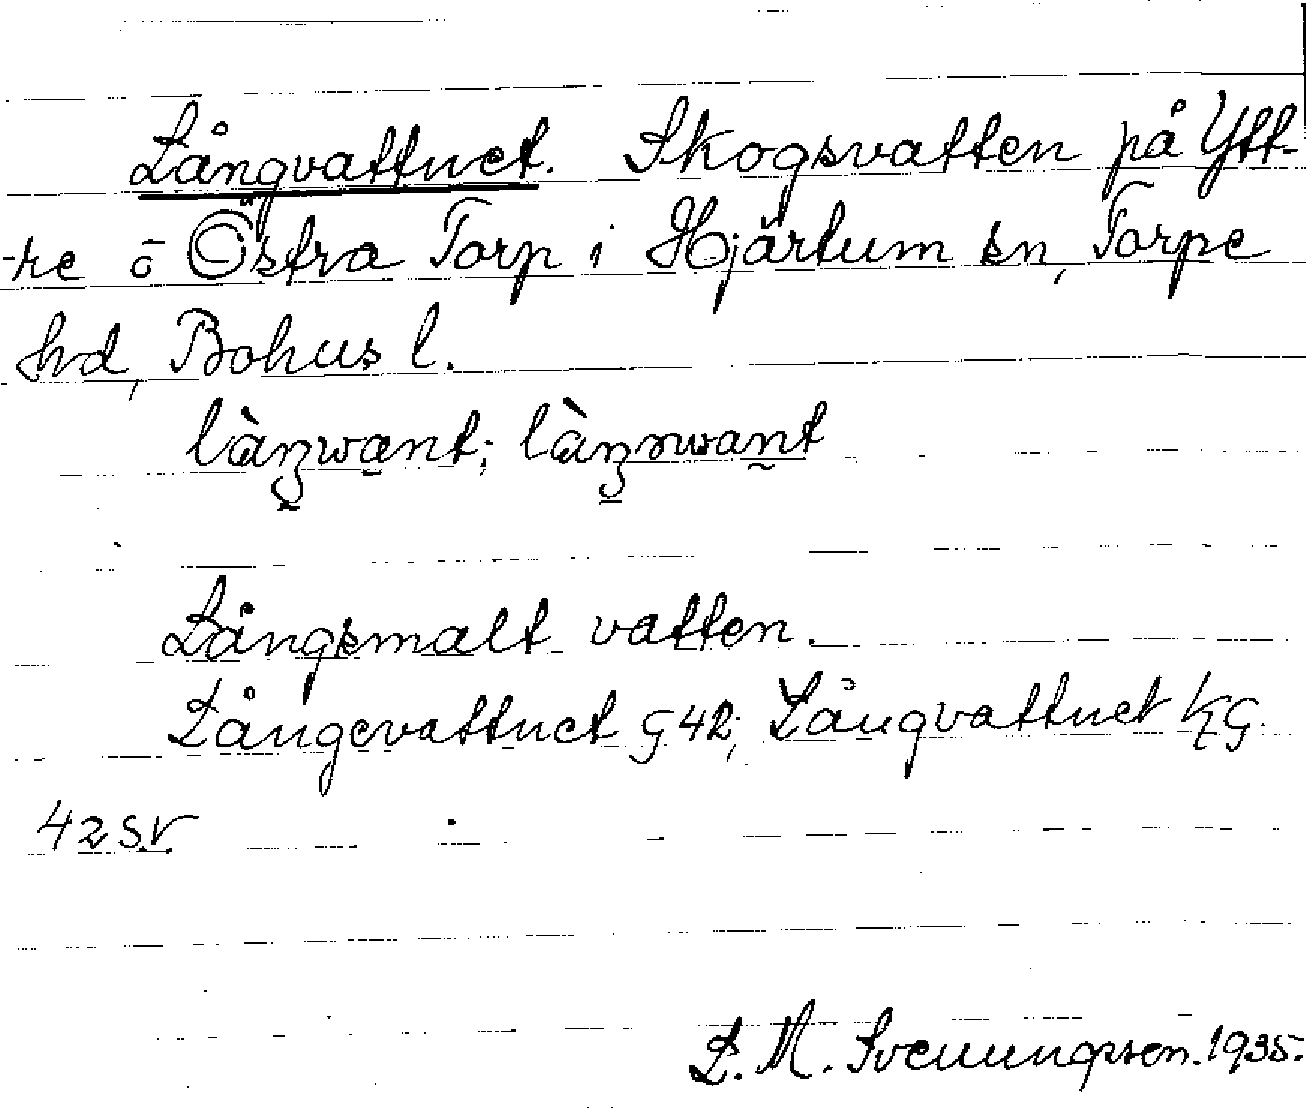 Långvattnet. Skogsvatten på Ytt-
re o Östra Torp i Hjärtum sn, Torpe
hd, Bohus l.
Långsmalt vatten.
Långevattnet G 42; Långvattnet KG
42 SV
L. M. Svenungsson. 1935.